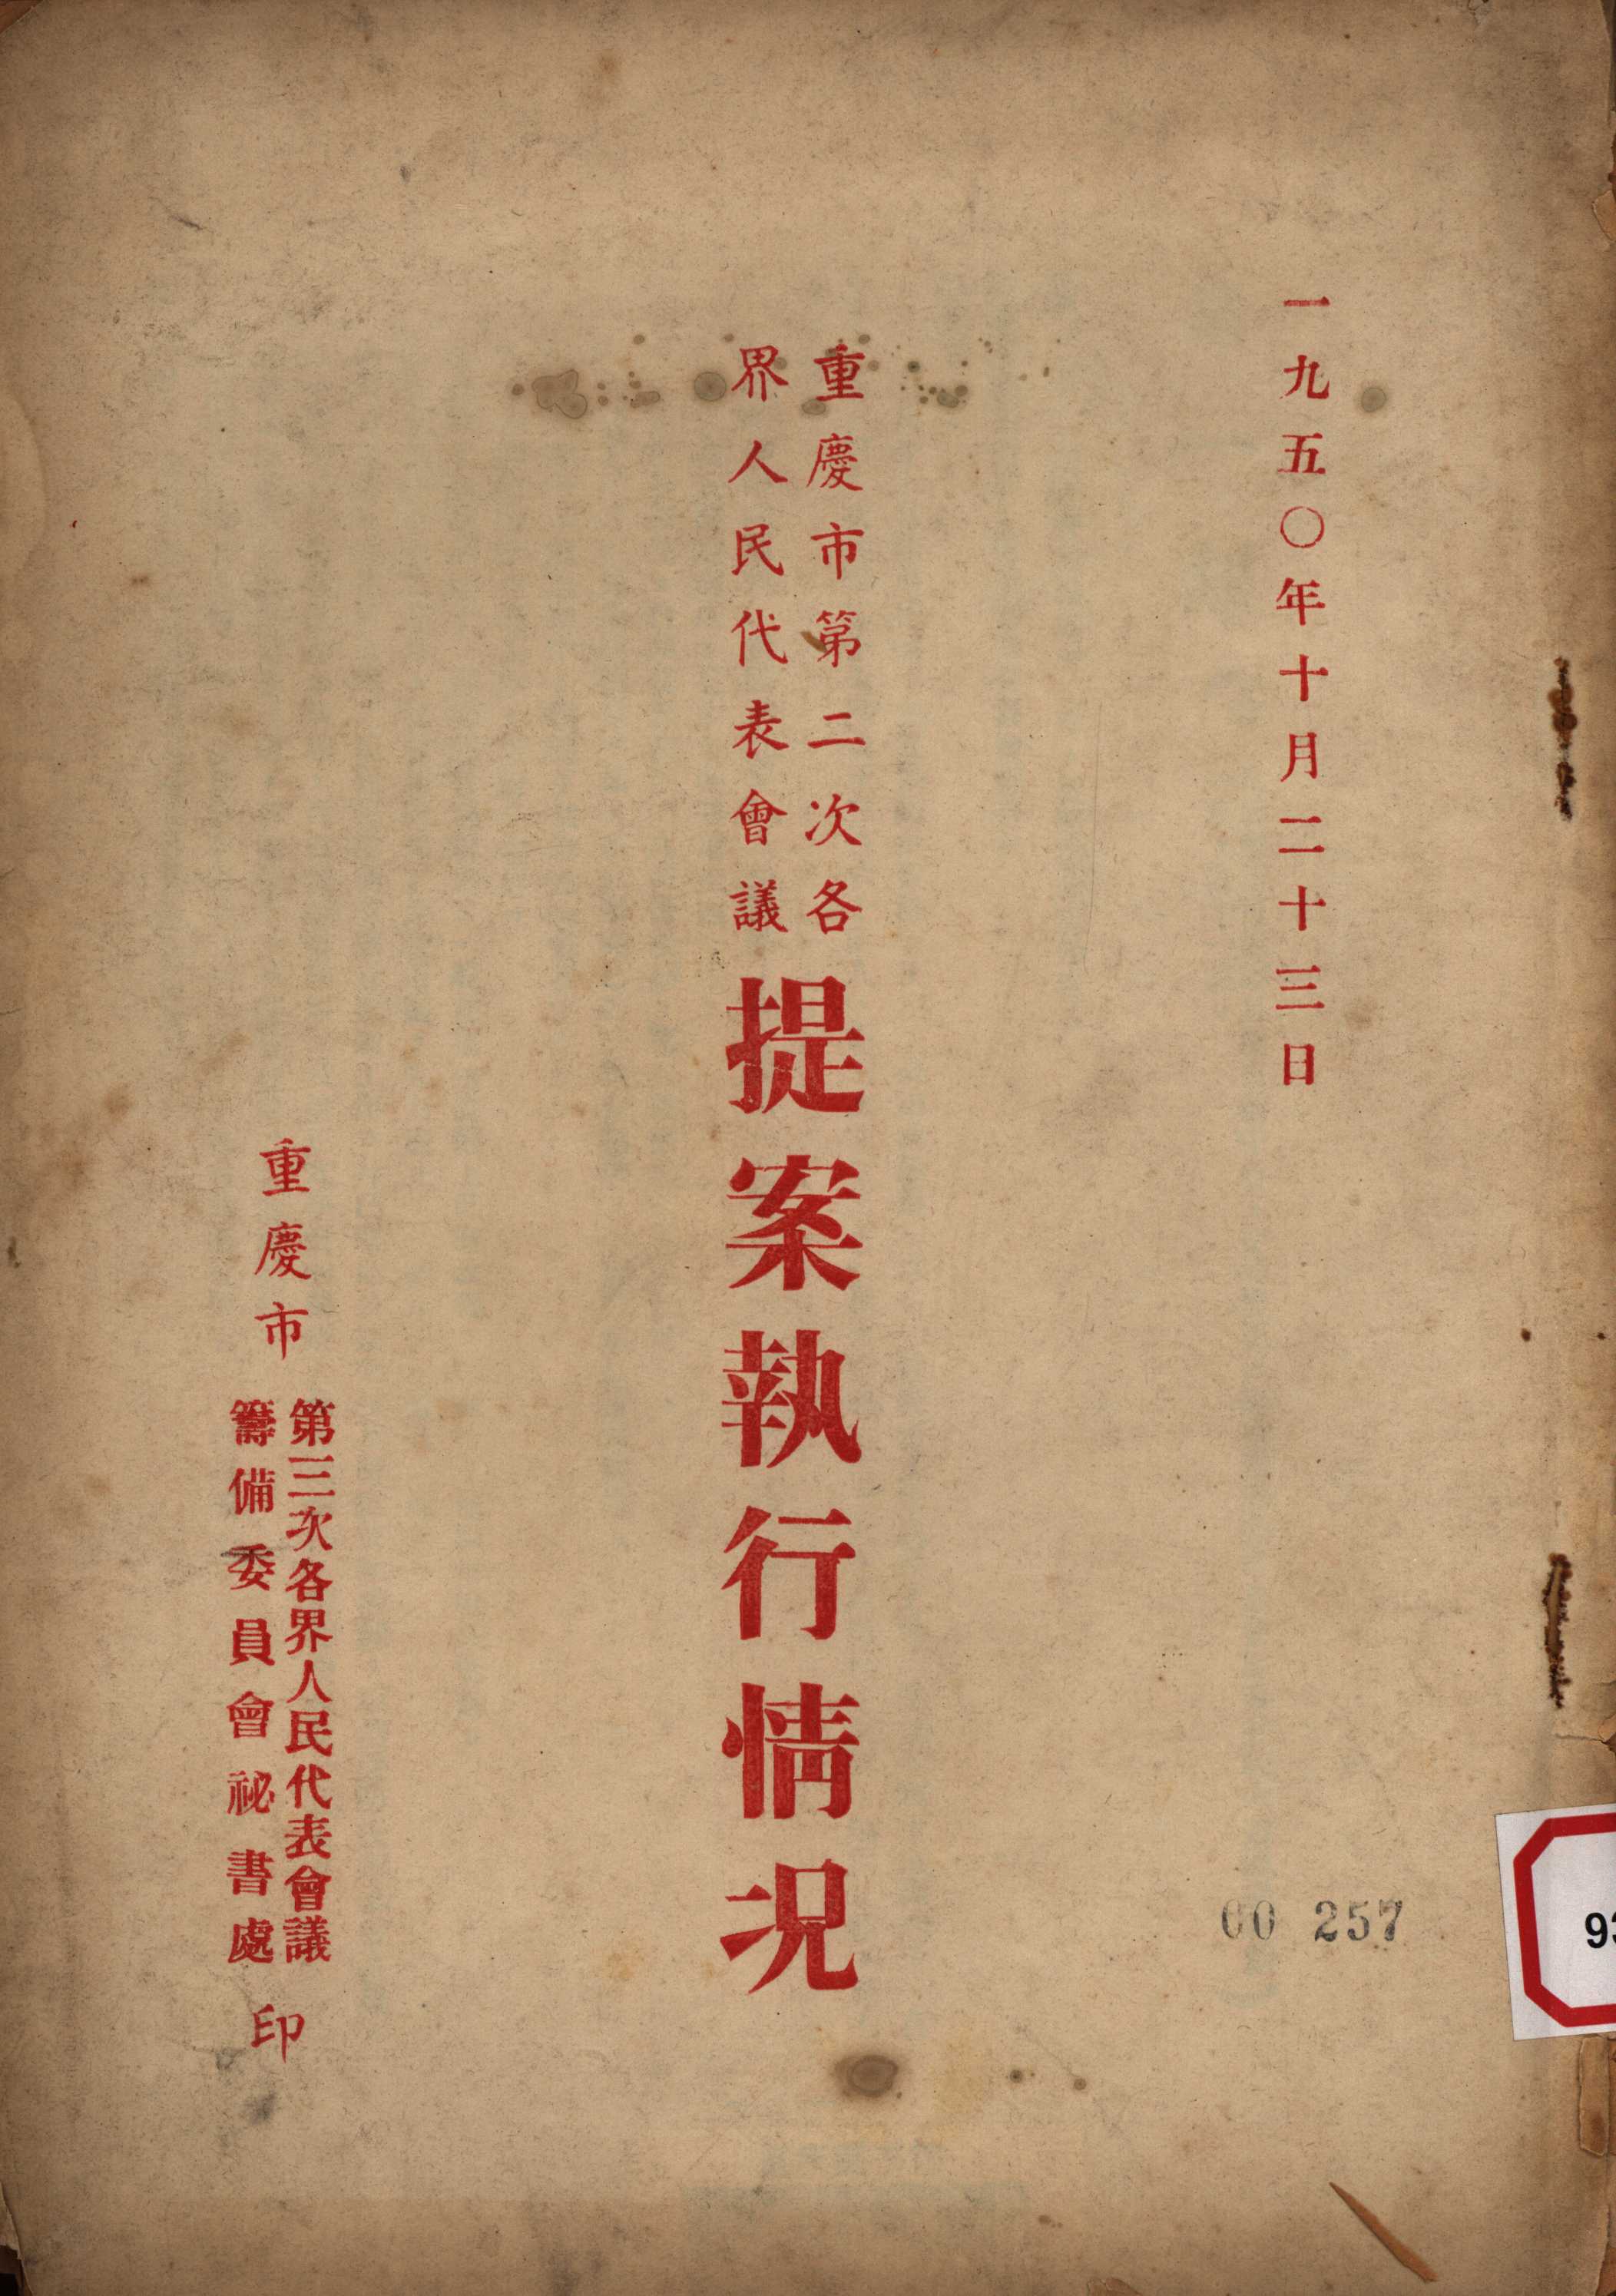 一九五〇年十月二十三日
重慶市第二次各
界人民代表會議
提案執行情况
重慶市
第三次各界人民代表會議
籌備委員會祕書處
印
00 257